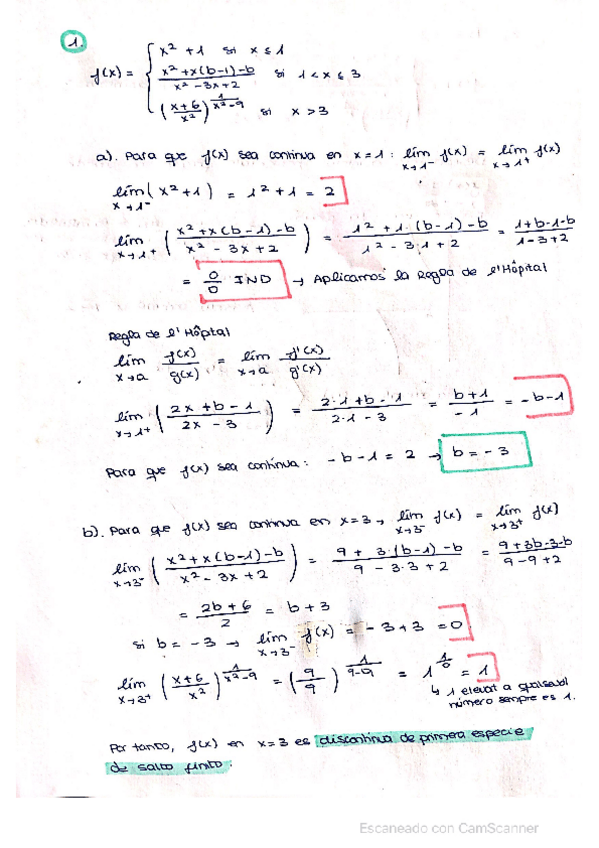 1.
f(x) = { x² + 1 si x ≤ 1
(x² + x(b-1) - b)/(x² - 3x + 2) si 1 < x ≤ 3
((x+6)/x²)^(1/(x²-9)) si x > 3
a). Para que f(x) sea continua en x=1: lím x→1⁻ f(x) = lím x→1⁺ f(x)
lím x→1⁻ (x²+1) = 1² + 1 = 2
lím x→1⁺ ((x² + x(b-1) - b)/(x² - 3x + 2)) = (1² + 1·(b-1) - b)/(1² - 3·1 + 2) = (1+b-1-b)/(1-3+2)
= 0/0 IND → Aplicamos la Regla de l'Hôpital
Regla de l'Hôpital
lím x→a f(x)/g(x) = lím x→a f'(x)/g'(x)
lím x→1⁺ ((2x + b - 1)/(2x - 3)) = (2·1 + b - 1)/(2·1 - 3) = (b+1)/(-1) = -b-1
Para que f(x) sea contínua: -b-1 = 2 → b = -3
b). Para que f(x) sea continua en x=3 → lím x→3⁻ f(x) = lím x→3⁺ f(x)
lím x→3⁻ ((x² + x(b-1) - b)/(x² - 3x + 2)) = (9 + 3·(b-1) - b)/(9 - 3·3 + 2) = (9+3b-3-b)/(9-9+2)
= (2b+6)/2 = b+3
si b = -3 → lím x→3⁻ f(x) = -3+3 = 0
lím x→3⁺ ((x+6)/x²)^(1/(x²-9)) = (9/9)^(1/(9-9)) = 1^(1/0) = 1
↳ 1 elevat a qualsevol
número sempre es 1.
Por tanto, f(x) en x=3 es discontinua de primera especie
de salto finito.
Escaneado con CamScanner